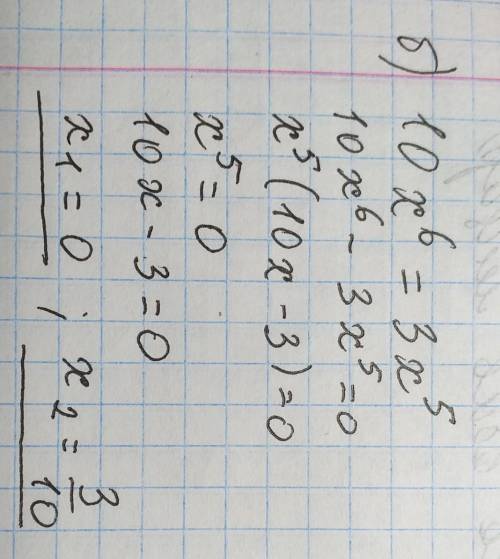 б) 10x⁶ = 3x⁵
10x⁶ - 3x⁵ = 0
x⁵(10x - 3) = 0
x⁵ = 0
10x - 3 = 0
x₁ = 0 ; x₂ = 3/10